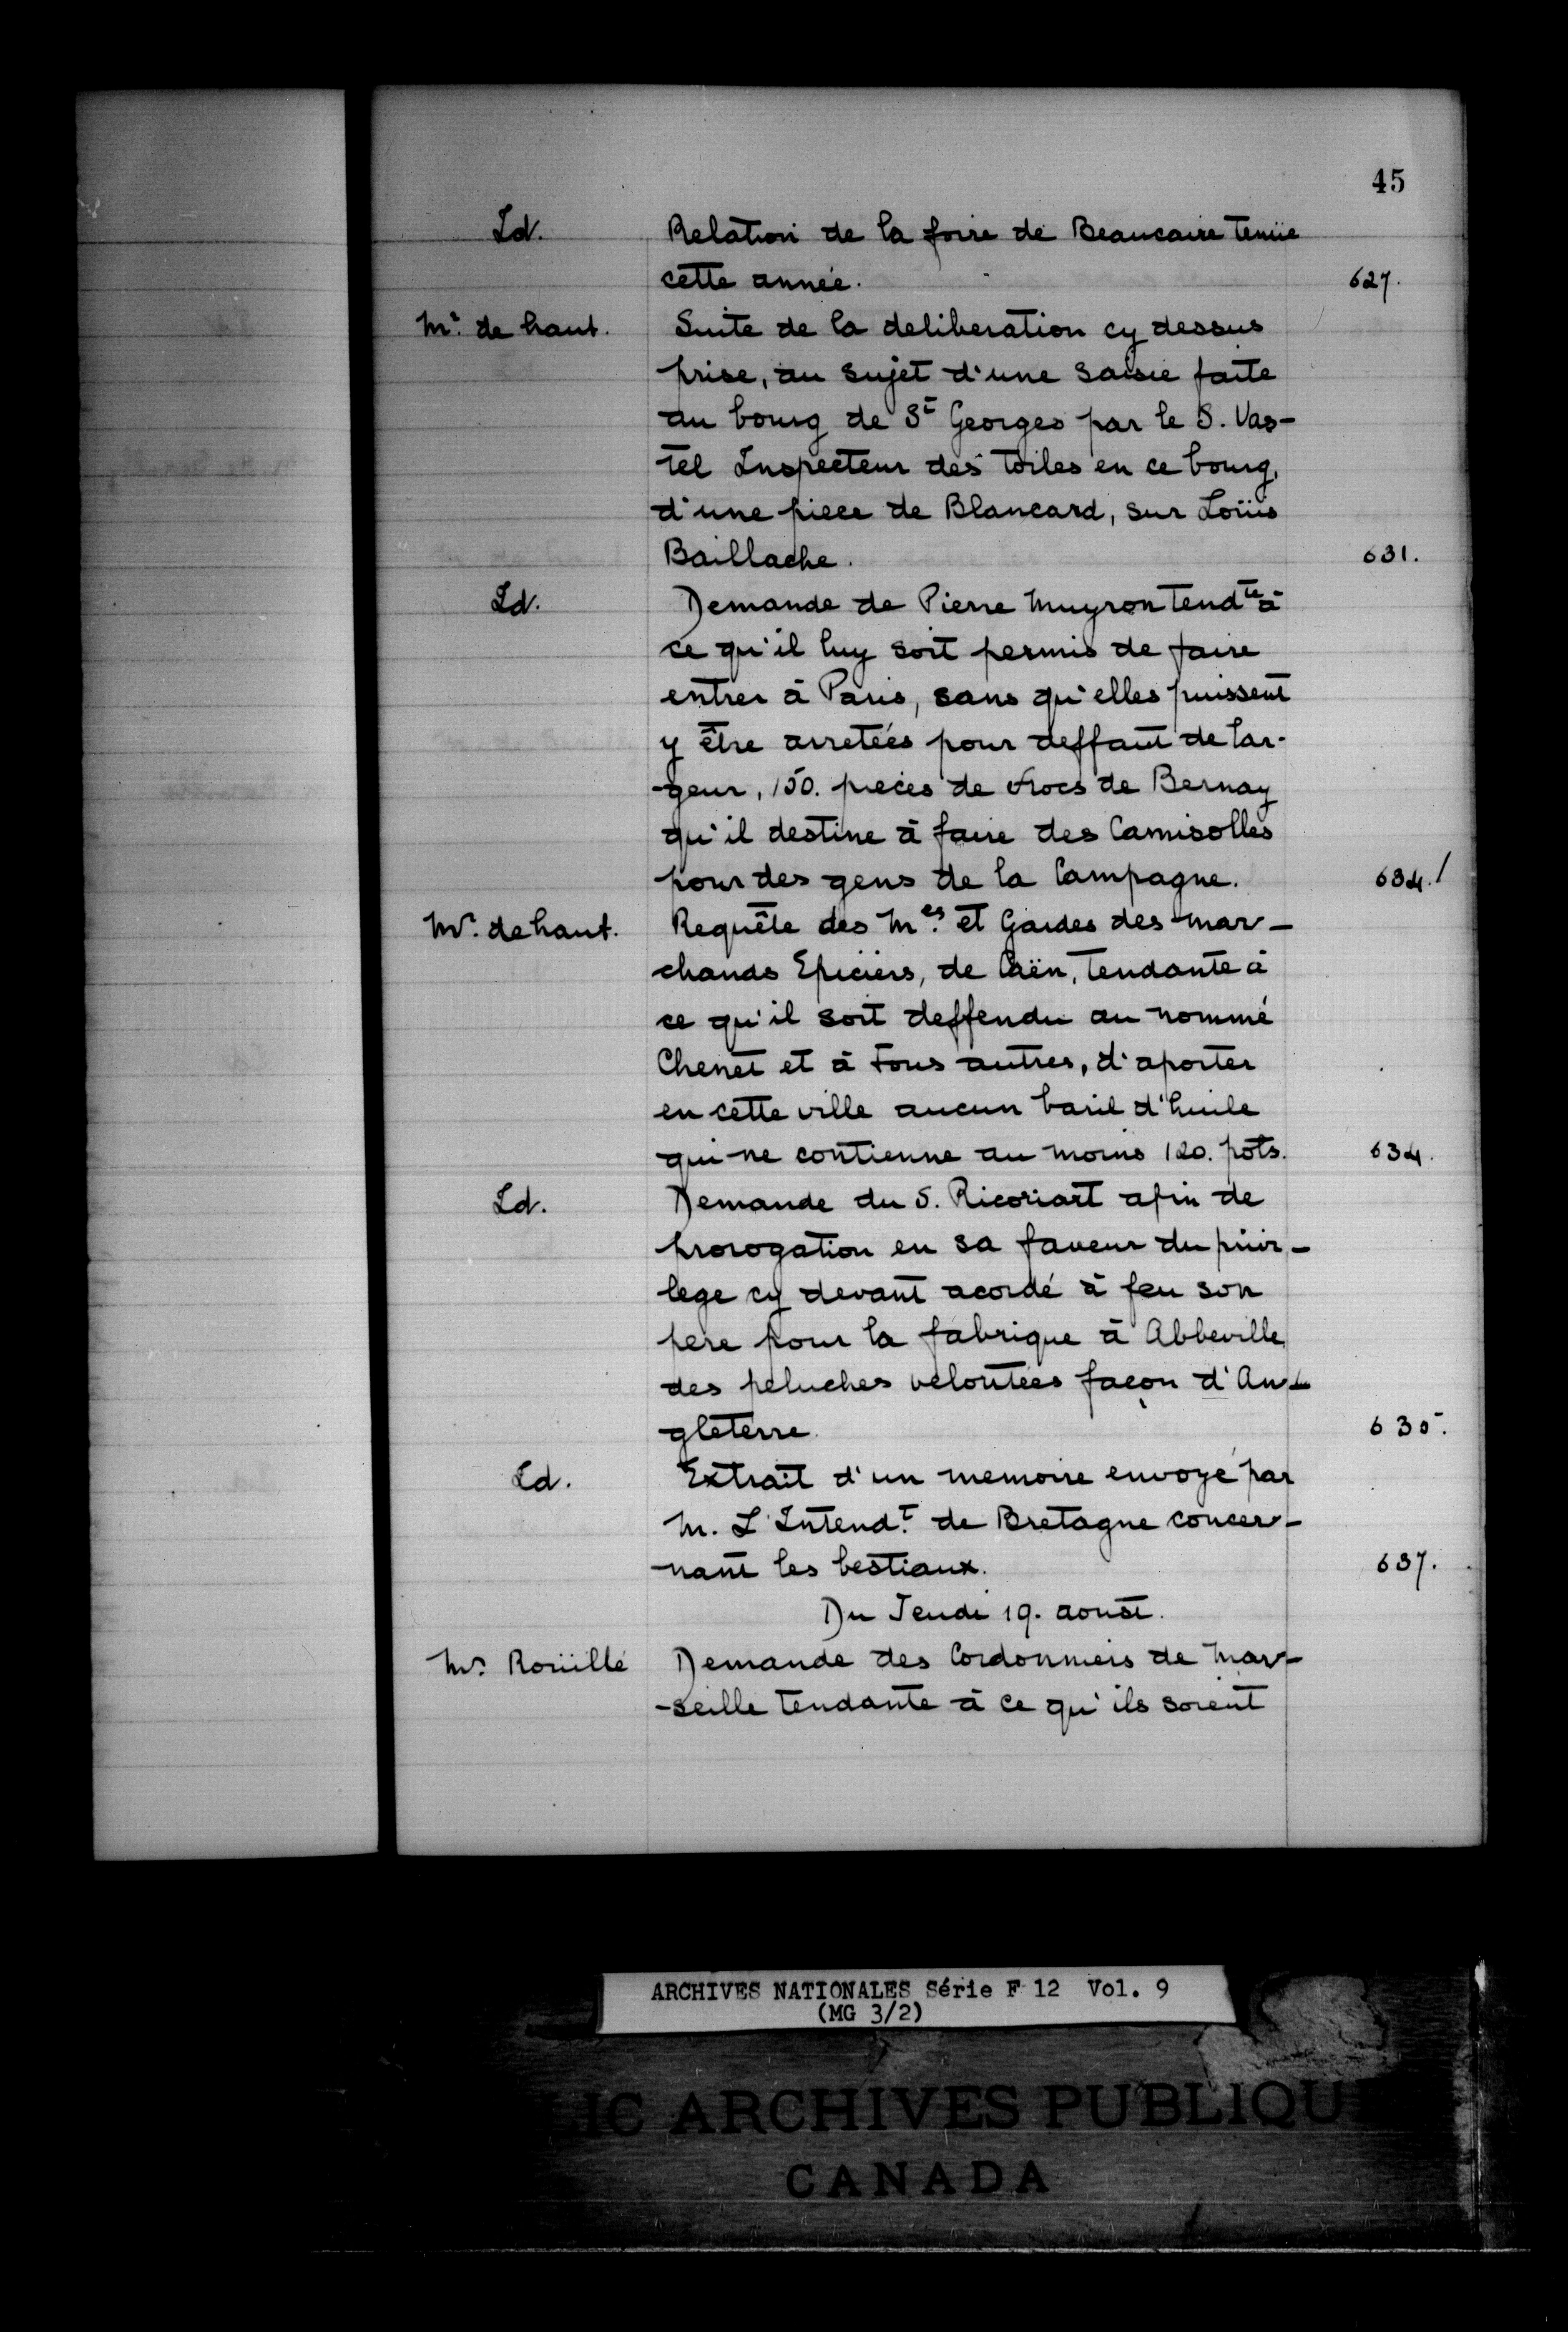 45
Id. Relation de la foire de Beaucaire tenüe
cette année. 627.
Mr. de haut. Suite de la deliberation cy dessus
prise, au sujet d'une saisie faite
au bourg de St Georges par le S. Vas-
tel Inspecteur des toiles en ce bourg,
d'une piece de Blancard, sur Loüis
Baillache. 631.
Id. Demande de Pierre Muyron tendte à
ce qu'il luy soit permis de faire
entrer à Paris, sans qu'elles puissent
y être arretées pour deffaut de lar-
-geur, 150. pieces de frocs de Bernay
qu'il destine à faire des Camisolles
pour des gens de la Campagne. 634./
Mr. de haut. Requête des Mes. et Gardes des mar-
chands Epiciers, de Caën, tendante à
ce qu'il soit deffendu au nommé
Chenet et à tous autres, d'aporter
en cette ville aucun baril d'huile
qui ne contienne au moins 120. pots. 634.
Id. Demande du S. Ricoriart afin de
prorogation en sa faveur du privi-
lege cy devant acordé à feu son
pere pour la fabrique à Abbeville
des peluches veloutées façon d'An-
gleterre. 635.
Id. Extrait d'un memoire envoyé par
M. L'Intendt. de Bretagne concer-
nant les bestiaux. 637.
Du Jeudi 19. aoust.
Mr. Roüillé Demande des Cordonniers de Mar-
-seille tendante à ce qu'ils soient
ARCHIVES NATIONALES Série F 12 Vol. 9
(MG 3/2)
LIC ARCHIVES PUBLIQU
CANADA